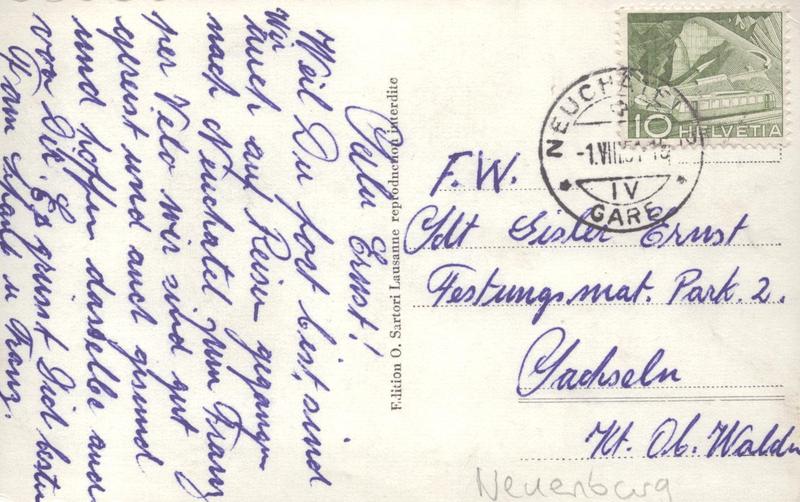 Salu Ernst!
Weil Du fort bist, sind
Wir
auch auf Reisen gegangen
nach Neuchatel zum Franz
per Velo wir sind gut
gereist und auch gesund
und hoffen dasselbe auch
von Dir. Es grüsst Dich bestens
Fam u Franz.
Edition O. Sartori Lausanne reproduction interdite
10 HELVETIA
NEUCHATEL
-1.VIII.51-
IV
GARE
F.W.
Sdt Sisler Ernst
Festungsmat. Park 2.
Sachseln
Kt. Ob. Walden
Neuenburg